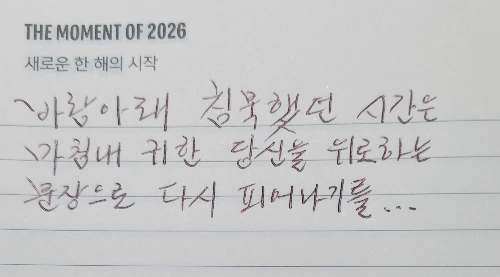 THE MOMENT OF 2026
새로운 한 해의 시작
바람아래 침묵했던 시간은
마침내 귀한 당신을 위로하는
문장으로 다시 피어나기를...